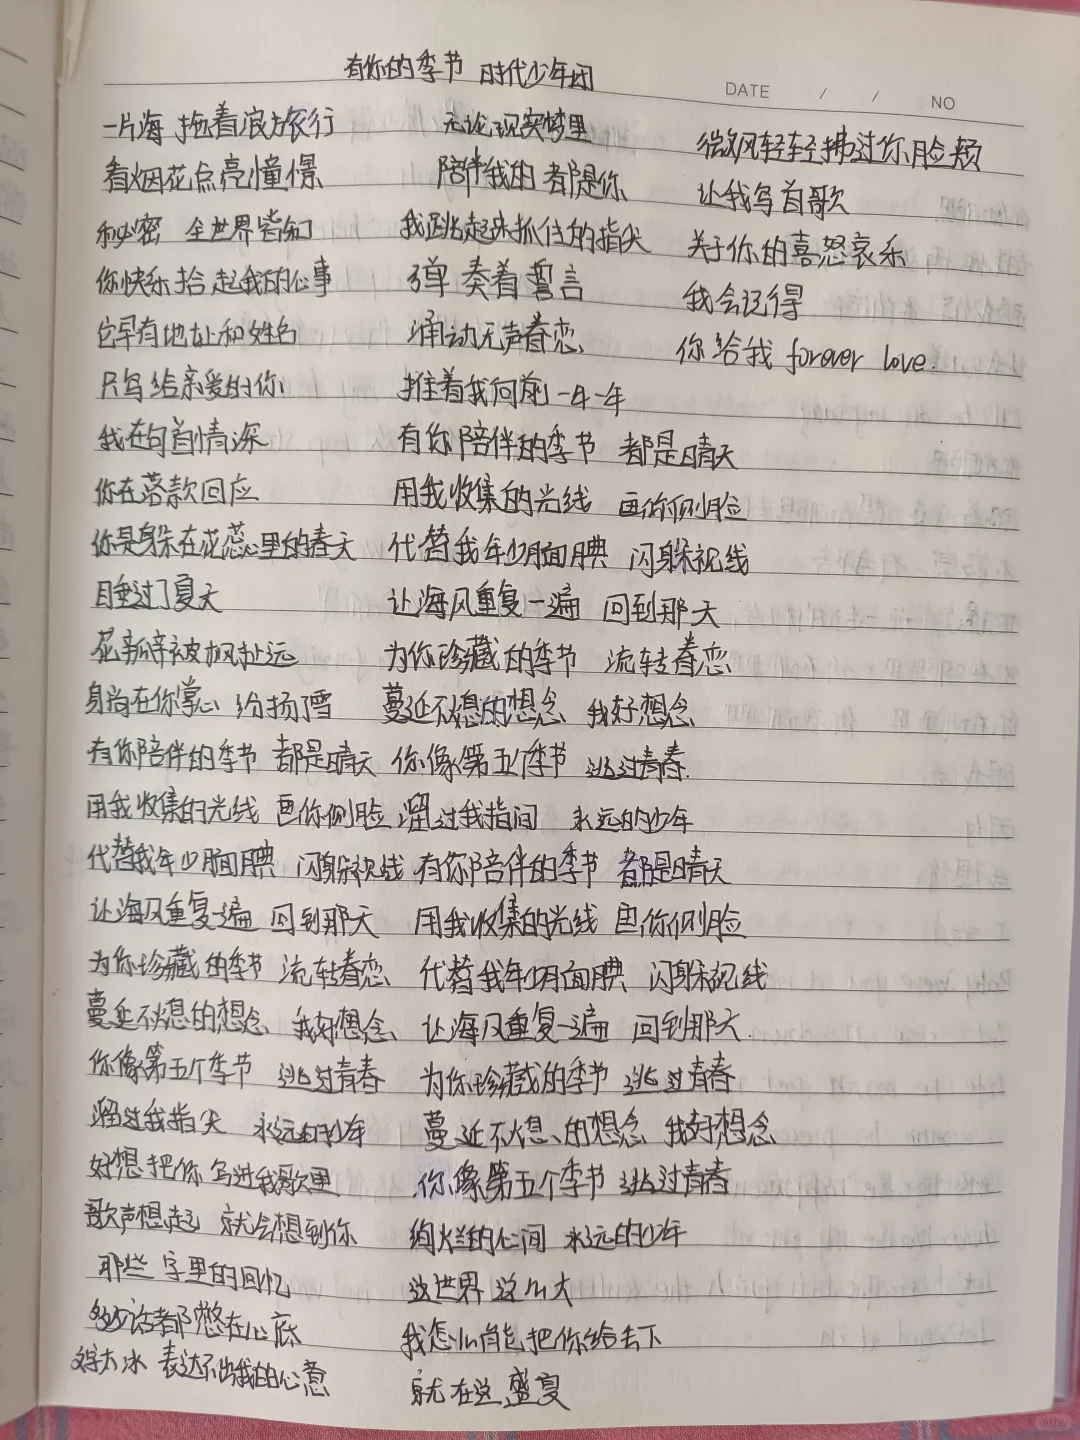 有你的季节 时代少年团
DATE / / NO
一片海 拖着浪旅行
看烟花点亮憧憬
秘密 全世界皆知
你快乐拾起我的心事
它早有地址和姓名
只写给亲爱的你
我在句首情深
你在落款回应
你是躲在花蕊心里的春天
睡过了夏天
花新等被枫扯远
身尚在你掌心 纷扬了雪
有你陪伴的季节 都是晴天
用我收集的光线 画你侧脸
代替我年少腼腆 闪躲视线
让海风重复一遍 回到那天
为你珍藏的季节 流转眷恋
蔓延不熄的想念 我好想念
你像第五个季节 逃过青春
溜过我指尖 永远的少年
好想把你写进我歌里
歌声想起 就会想到你
那些字里的回忆
多少话都憋在心底
文字太冰 表达不出我的心意
无论现实梦里
陪伴我的都是你
我跳起来抓住的指尖
弹奏着誓言
涌动无声眷恋
推着我向前一年一年
有你陪伴的季节 都是晴天
用我收集的光线 画你侧脸
代替我年少腼腆 闪躲视线
让海风重复一遍 回到那天
为你珍藏的季节 流转眷恋
蔓延不熄的想念 我好想念
你像第五个季节 逃过青春
溜过我指间 永远的少年
有你陪伴的季节 都是晴天
用我收集的光线 画你侧脸
代替我年少腼腆 闪躲视线
让海风重复一遍 回到那天
为你珍藏的季节 逃过青春
蔓延不熄的想念 我好想念
你像第五个季节 逃过青春
绚烂的心间 永远的少年
这世界这么大
我怎么能把你给丢下
就在这盛夏
微风轻轻拂过你脸颊
让我写首歌
关于你的喜怒哀乐
我会记得
你给我 forever love.